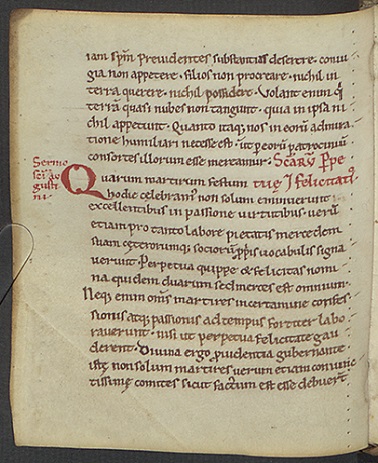 iam spm previdentes substantias deserere. coniu
gia non appetere. filios non procreare. nichil in
terra querere. nichil possidere. Volant enim q̄
terrā quasi nubes non tangunt. quia in ipsa ni
chil appetunt. Quanto itaq; nos in eorū admira
tione humiliari necesse est. ut p eorū patrociniū
consortes illorum esse mereamur. Scārū Ppe
Sermo
sci au
gusti
ni.
Quarum martirum festum tuę & felicitatis
hodie celebram' non solum eminuerunt in
excellentibus in passione virtutibus. verū
etiam pro tanto labore pietatis mercedem
suam ceterorumq; sociorū ppriis vocabulis signa
verunt. Perpetua quippe & felicitas nomi
na quidem duarum sed merces est omnium.
Neq; enim om̄s martires in certamine confes
sionis atq; passionis ad tempus fortiter labo
raverunt. nisi ut perpetua felicitate gau
derent. Divina ergo pvidentia gubernante
istę non solum martires verum etiam coniunc
tissimę comites sicut factum est esse debuer̄t